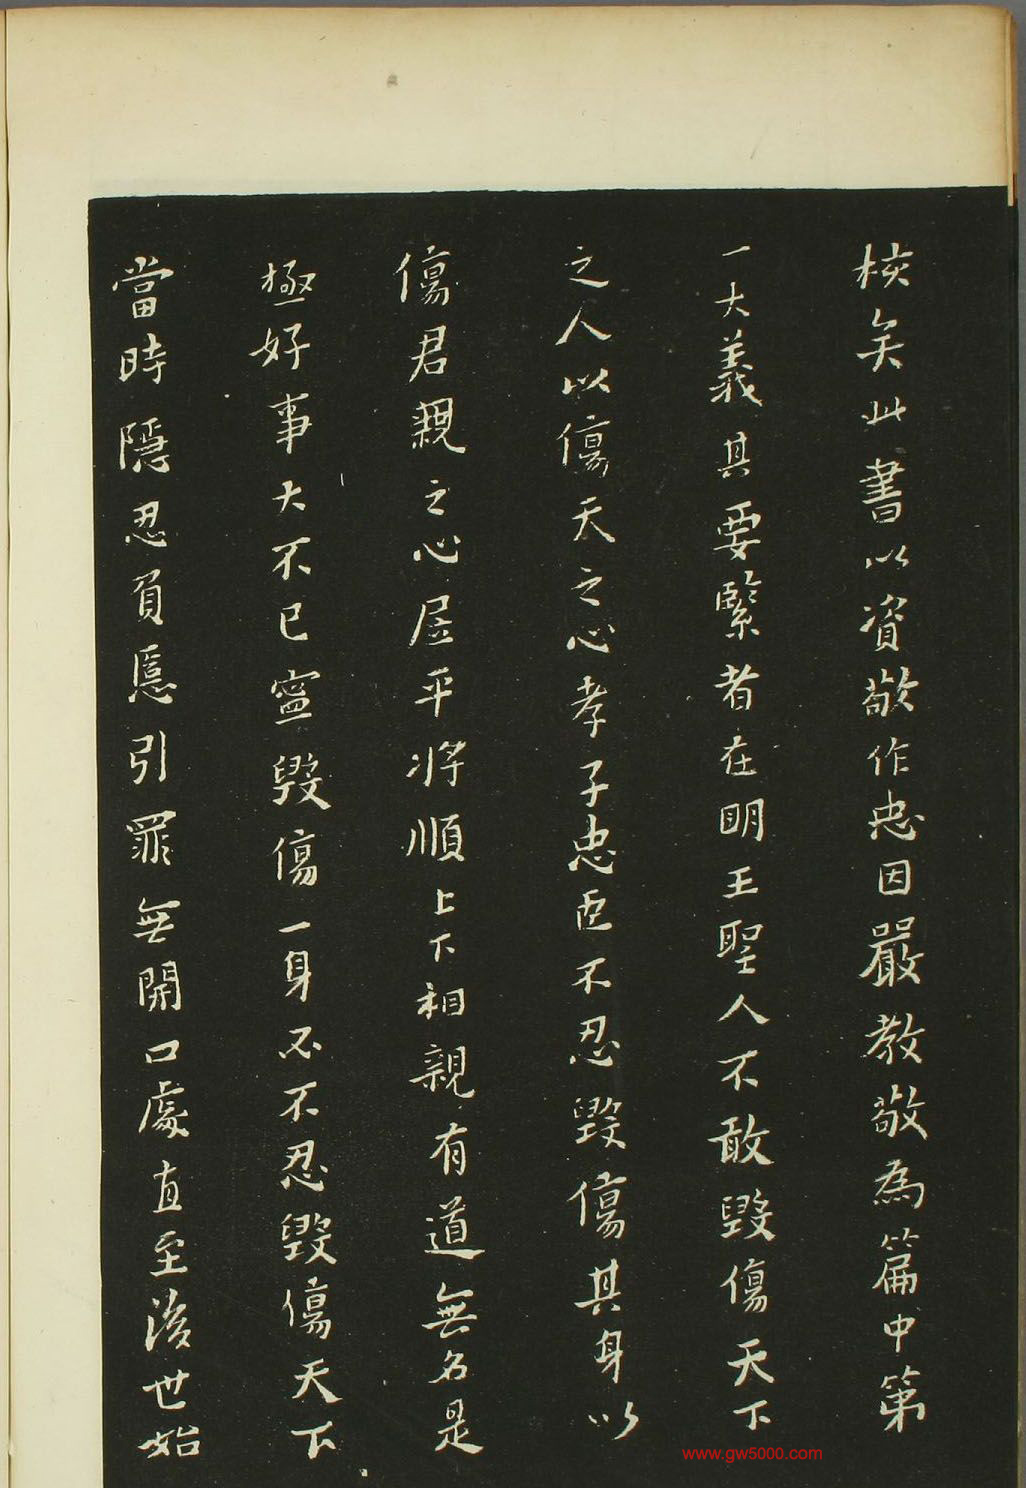 核矣此書以資敬作忠因嚴教敬為篇中第
一大義其要緊者在明王聖人不敢毀傷天下
之人以傷天之心孝子忠臣不忍毀傷其身以
傷君親之心屈平將順上下相親有道無名是
極好事大不已寧毀傷一身必不忍毀傷天下
當時隱忍負慝引罪無開口處直至後世始
www.gw5000.com